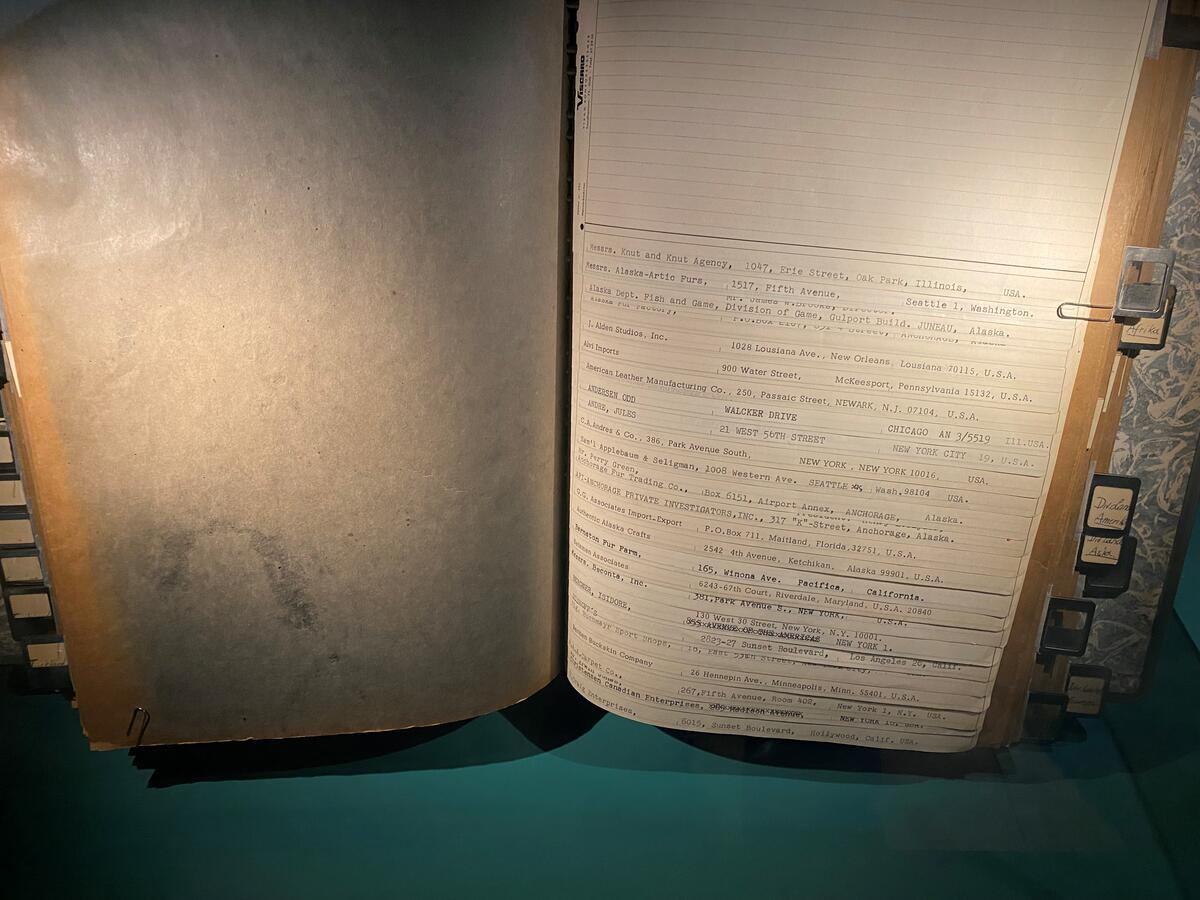 VISCARD
Messrs. Knut and Knut Agency, 1047, Erie Street, Oak Park, Illinois, USA.
Messrs. Alaska-Artic Furs, 1517, Fifth Avenue, Seattle 1, Washington.
Alaska Dept. Fish and Game, Division of Game, Gulport Build. JUNEAU, Alaska.
J. Alden Studios, Inc. 1028 Lousiana Ave., New Orleans, Lousiana 70115, U.S.A.
Alvi Imports 900 Water Street, McKeesport, Pennsylvania 15132, U.S.A.
American Leather Manufacturing Co., 250, Passaic Street, NEWARK, N.J. 07104, U.S.A.
ANDERSEN ODD WALCKER DRIVE CHICAGO AN 3/5519 Ill.USA.
ANDRE, JULES 21 WEST 56TH STREET NEW YORK CITY 19, U.S.A.
C.A.Andres & Co., 386, Park Avenue South, NEW YORK, NEW YORK 10016, USA.
Sam'l Applebaum & Seligman, 1008 Western Ave. SEATTLE Wash.98104 USA.
Mr. Perry Green,
Anchorage Fur Trading Co., Box 6151, Airport Annex, ANCHORAGE, Alaska.
API-ANCHORAGE PRIVATE INVESTIGATORS,INC., 317 "K"-Street, Anchorage, Alaska.
O.G. Associates Import-Export P.O.Box 711, Maitland, Florida,32751, U.S.A.
Authentic Alaska Crafts 2542 4th Avenue, Ketchikan, Alaska 99901, U.S.A.
Fur Farm, 165, Winona Ave. Pacifica, California.
Associates 6243-67th Court, Riverdale, Maryland, U.S.A. 20840
Messrs. Beconta, Inc. 381,Park Avenue S., NEW YORK, U.S.A.
ISIDORE, 130 West 30 Street, New York, N.Y. 10001.
855 AVENUE OF THE AMERICAS NEW YORK 1.
2823-27 Sunset Boulevard, Los Angeles 26, Calif.
Sport Shops,
Buckskin Company 26 Hennepin Ave., Minneapolis, Minn. 55401, U.S.A.
Carpet Co., 267,Fifth Avenue, Room 402, New York 1, N.Y. USA.
Canadian Enterprises, Madison Avenue,
Enterprises, 6015, Sunset Boulevard, Hollywood, Calif. USA.
Afrika